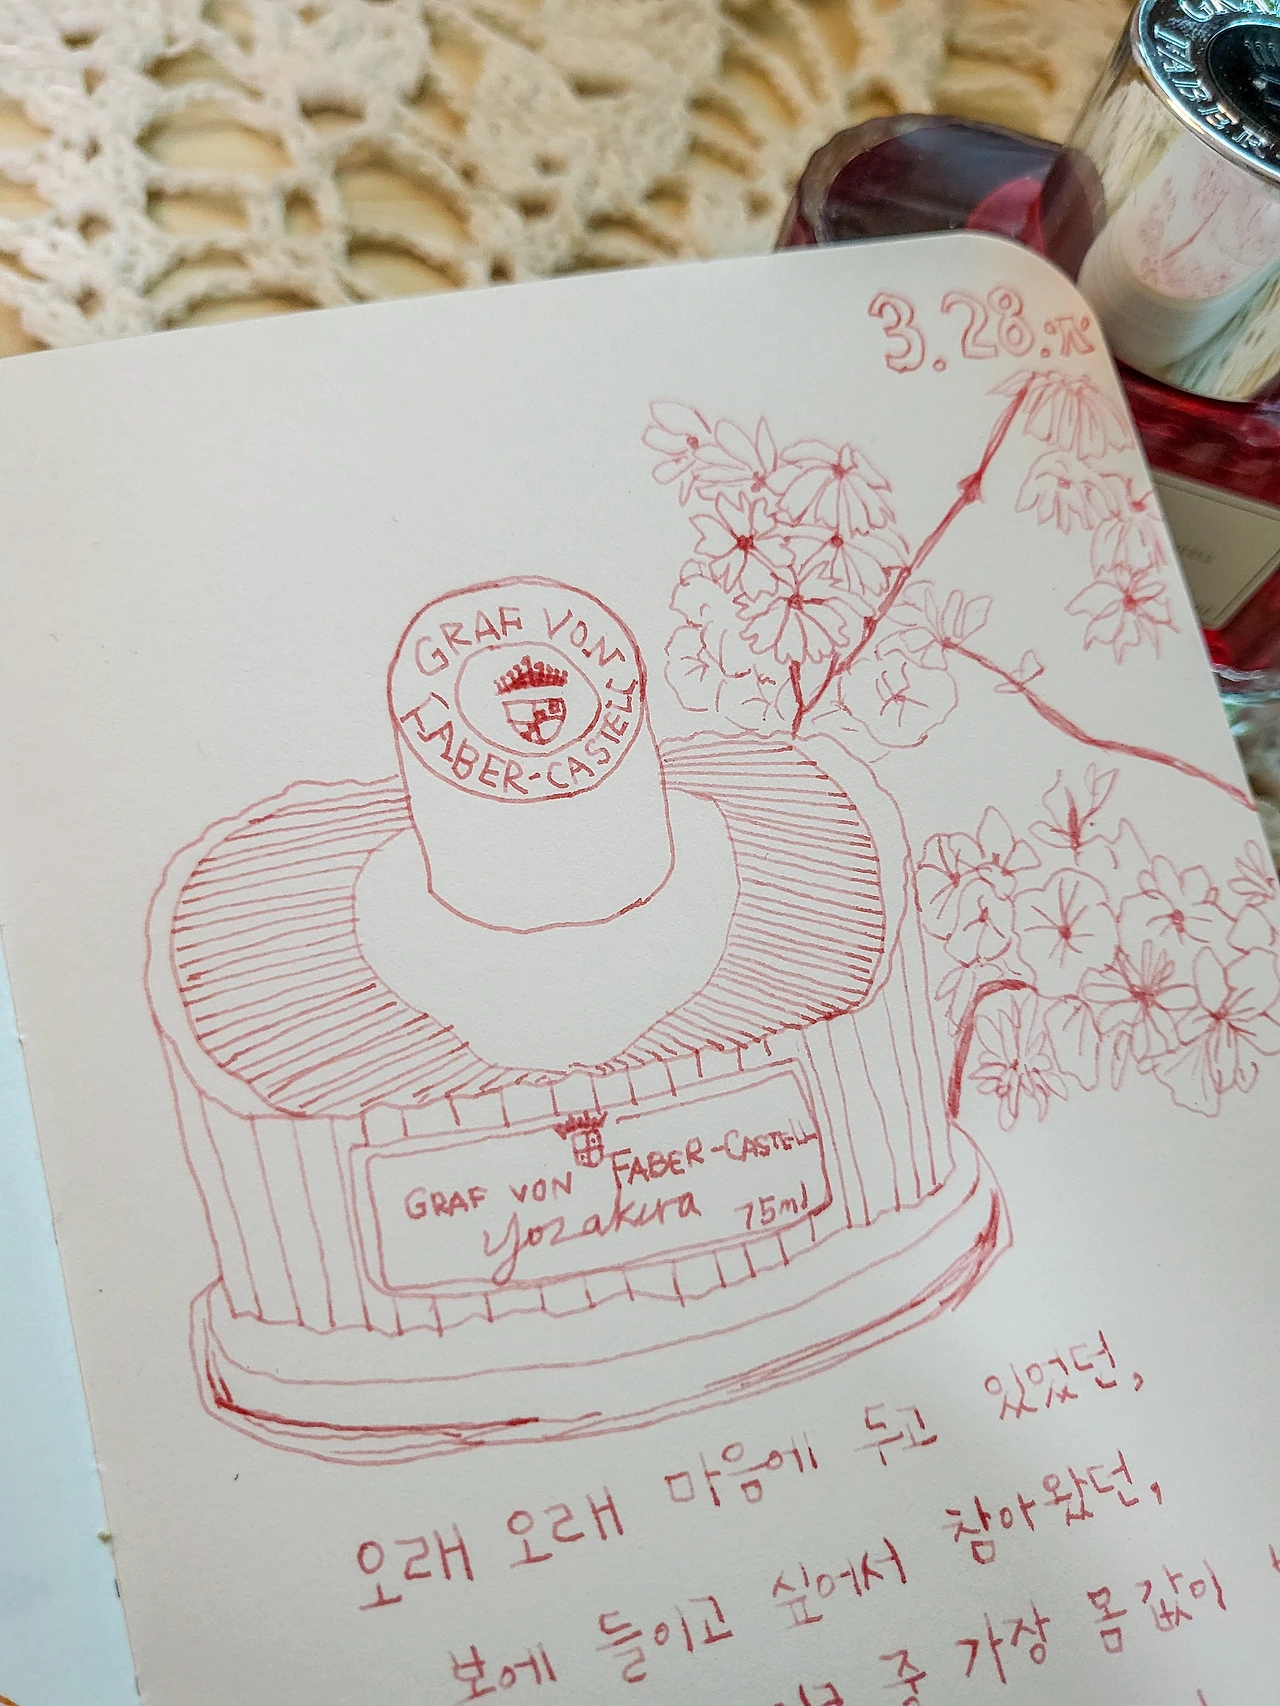 GRAF VON
FABER
3.28.
GRAF VON
FABER-CASTELL
GRAF VON FABER-CASTELL
Yozakura 75ml
오래 오래 마음에 두고 있었던,
보에 들이고 싶어서 참아왔던,
중 가장 몸값이